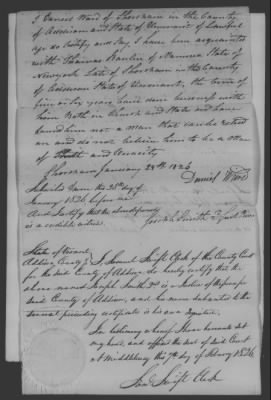 I Daniel Ward of Shoreham in the County
of Addison and State of Vermont of lawful
age do certify and say I have been acquainted
with Thomas Barlin of State of
Newyork late of Shoreham in the County
of Addison State of Vermont, the term of
five or six years have done business with
him both in and State and have
found him not a man that could
on and do not believe him to be a man
of Truth and Veracity
Shoreham January 28th 1826
Daniel Ward
Subscribed Sworn the 28th day of
January 1826 before me
And Certify that the
is a credible witness. Joseph Smith 2d Just Peace
State of Vermont
Addison County I Samuel Swift Clerk of the County Court
for the said County of Addison, do hereby certify that the
above named Joseph Smith 2d is a Justice of the peace for
said County of Addison, and the name subscribed to the
annexed preceding certificate is his own signature.
In testimony whereof I have hereunto set
my hand and affixed the seal of said Court
at Middlebury this 7th day of Febury 1826.
Sam Swift Clerk